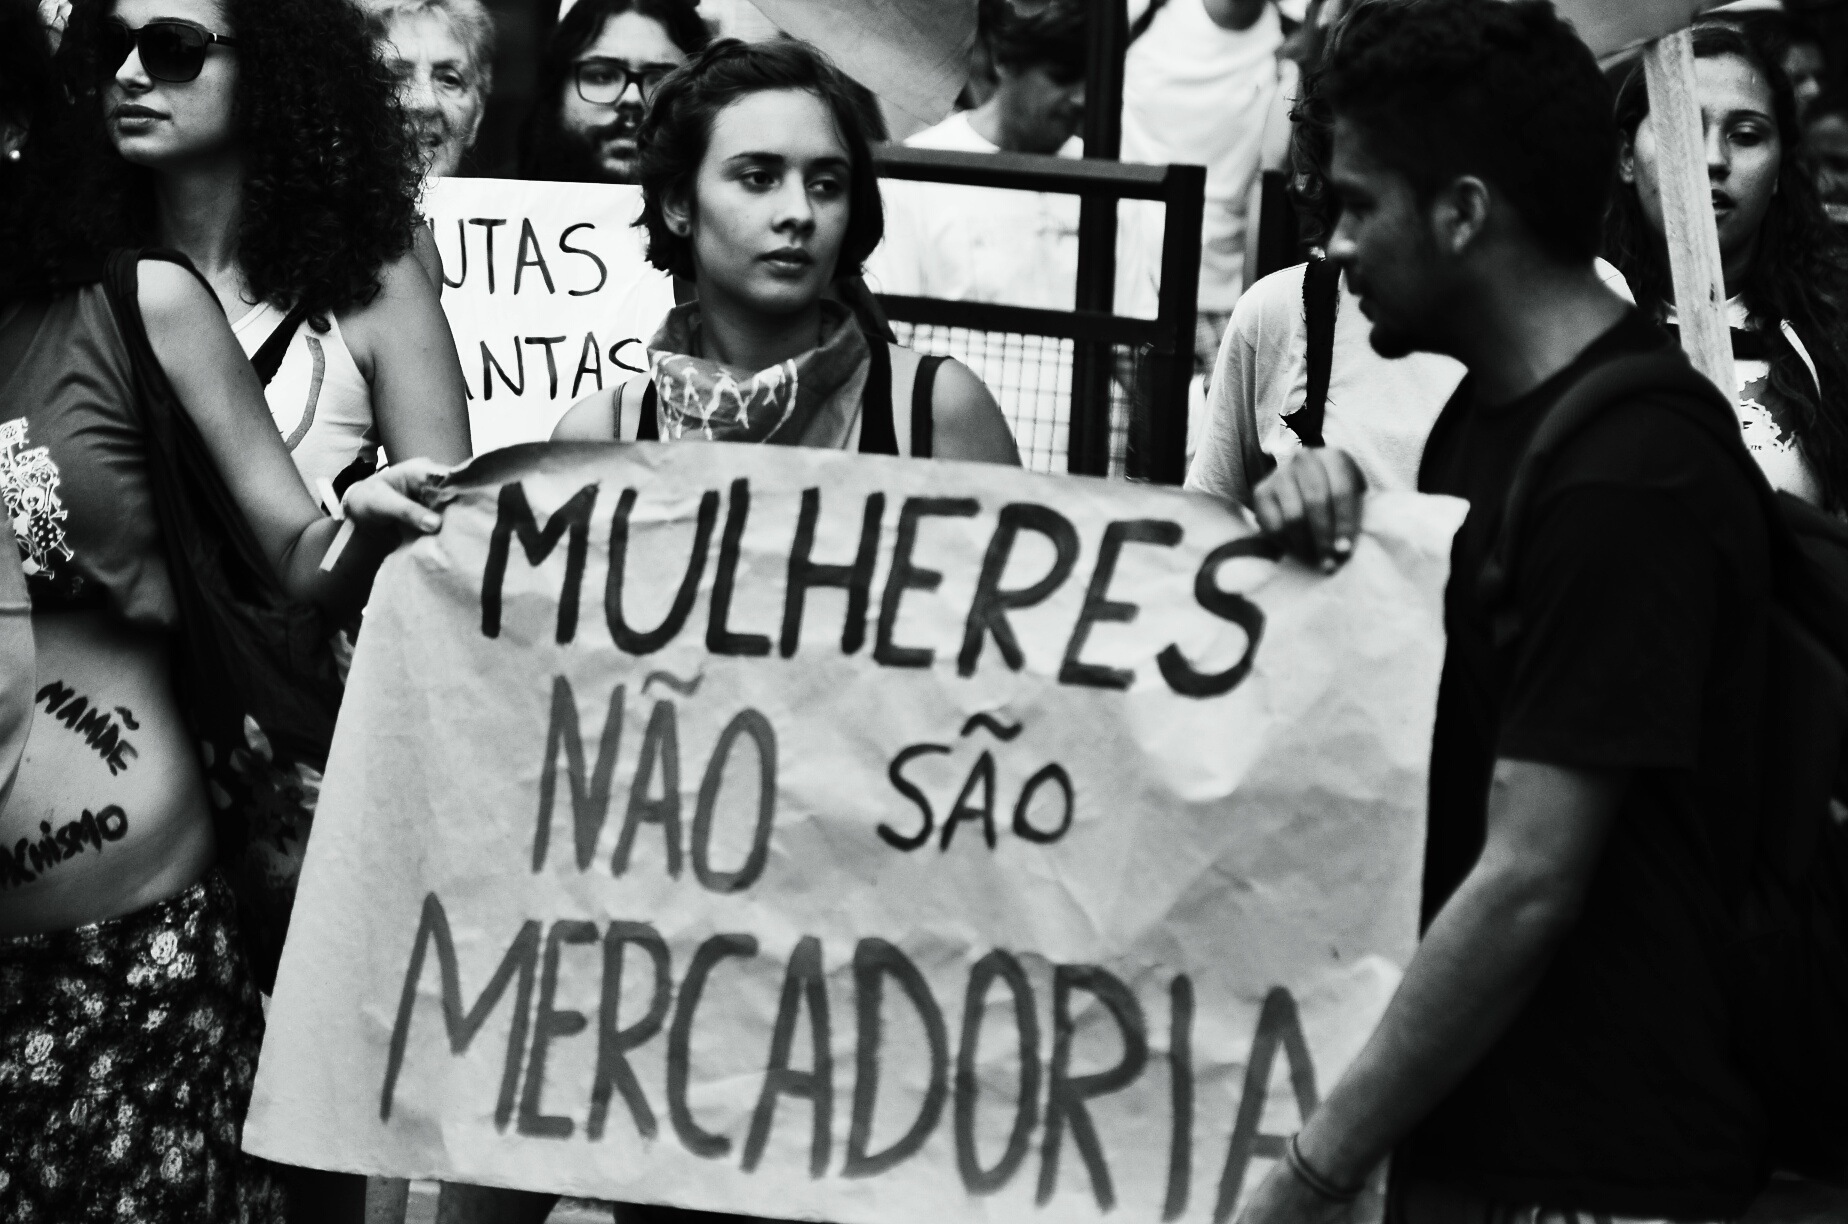 UTAS
ANTAS
MULHERES
NÃO SÃO
MERCADORIA
NAMÃE
ACHISMO